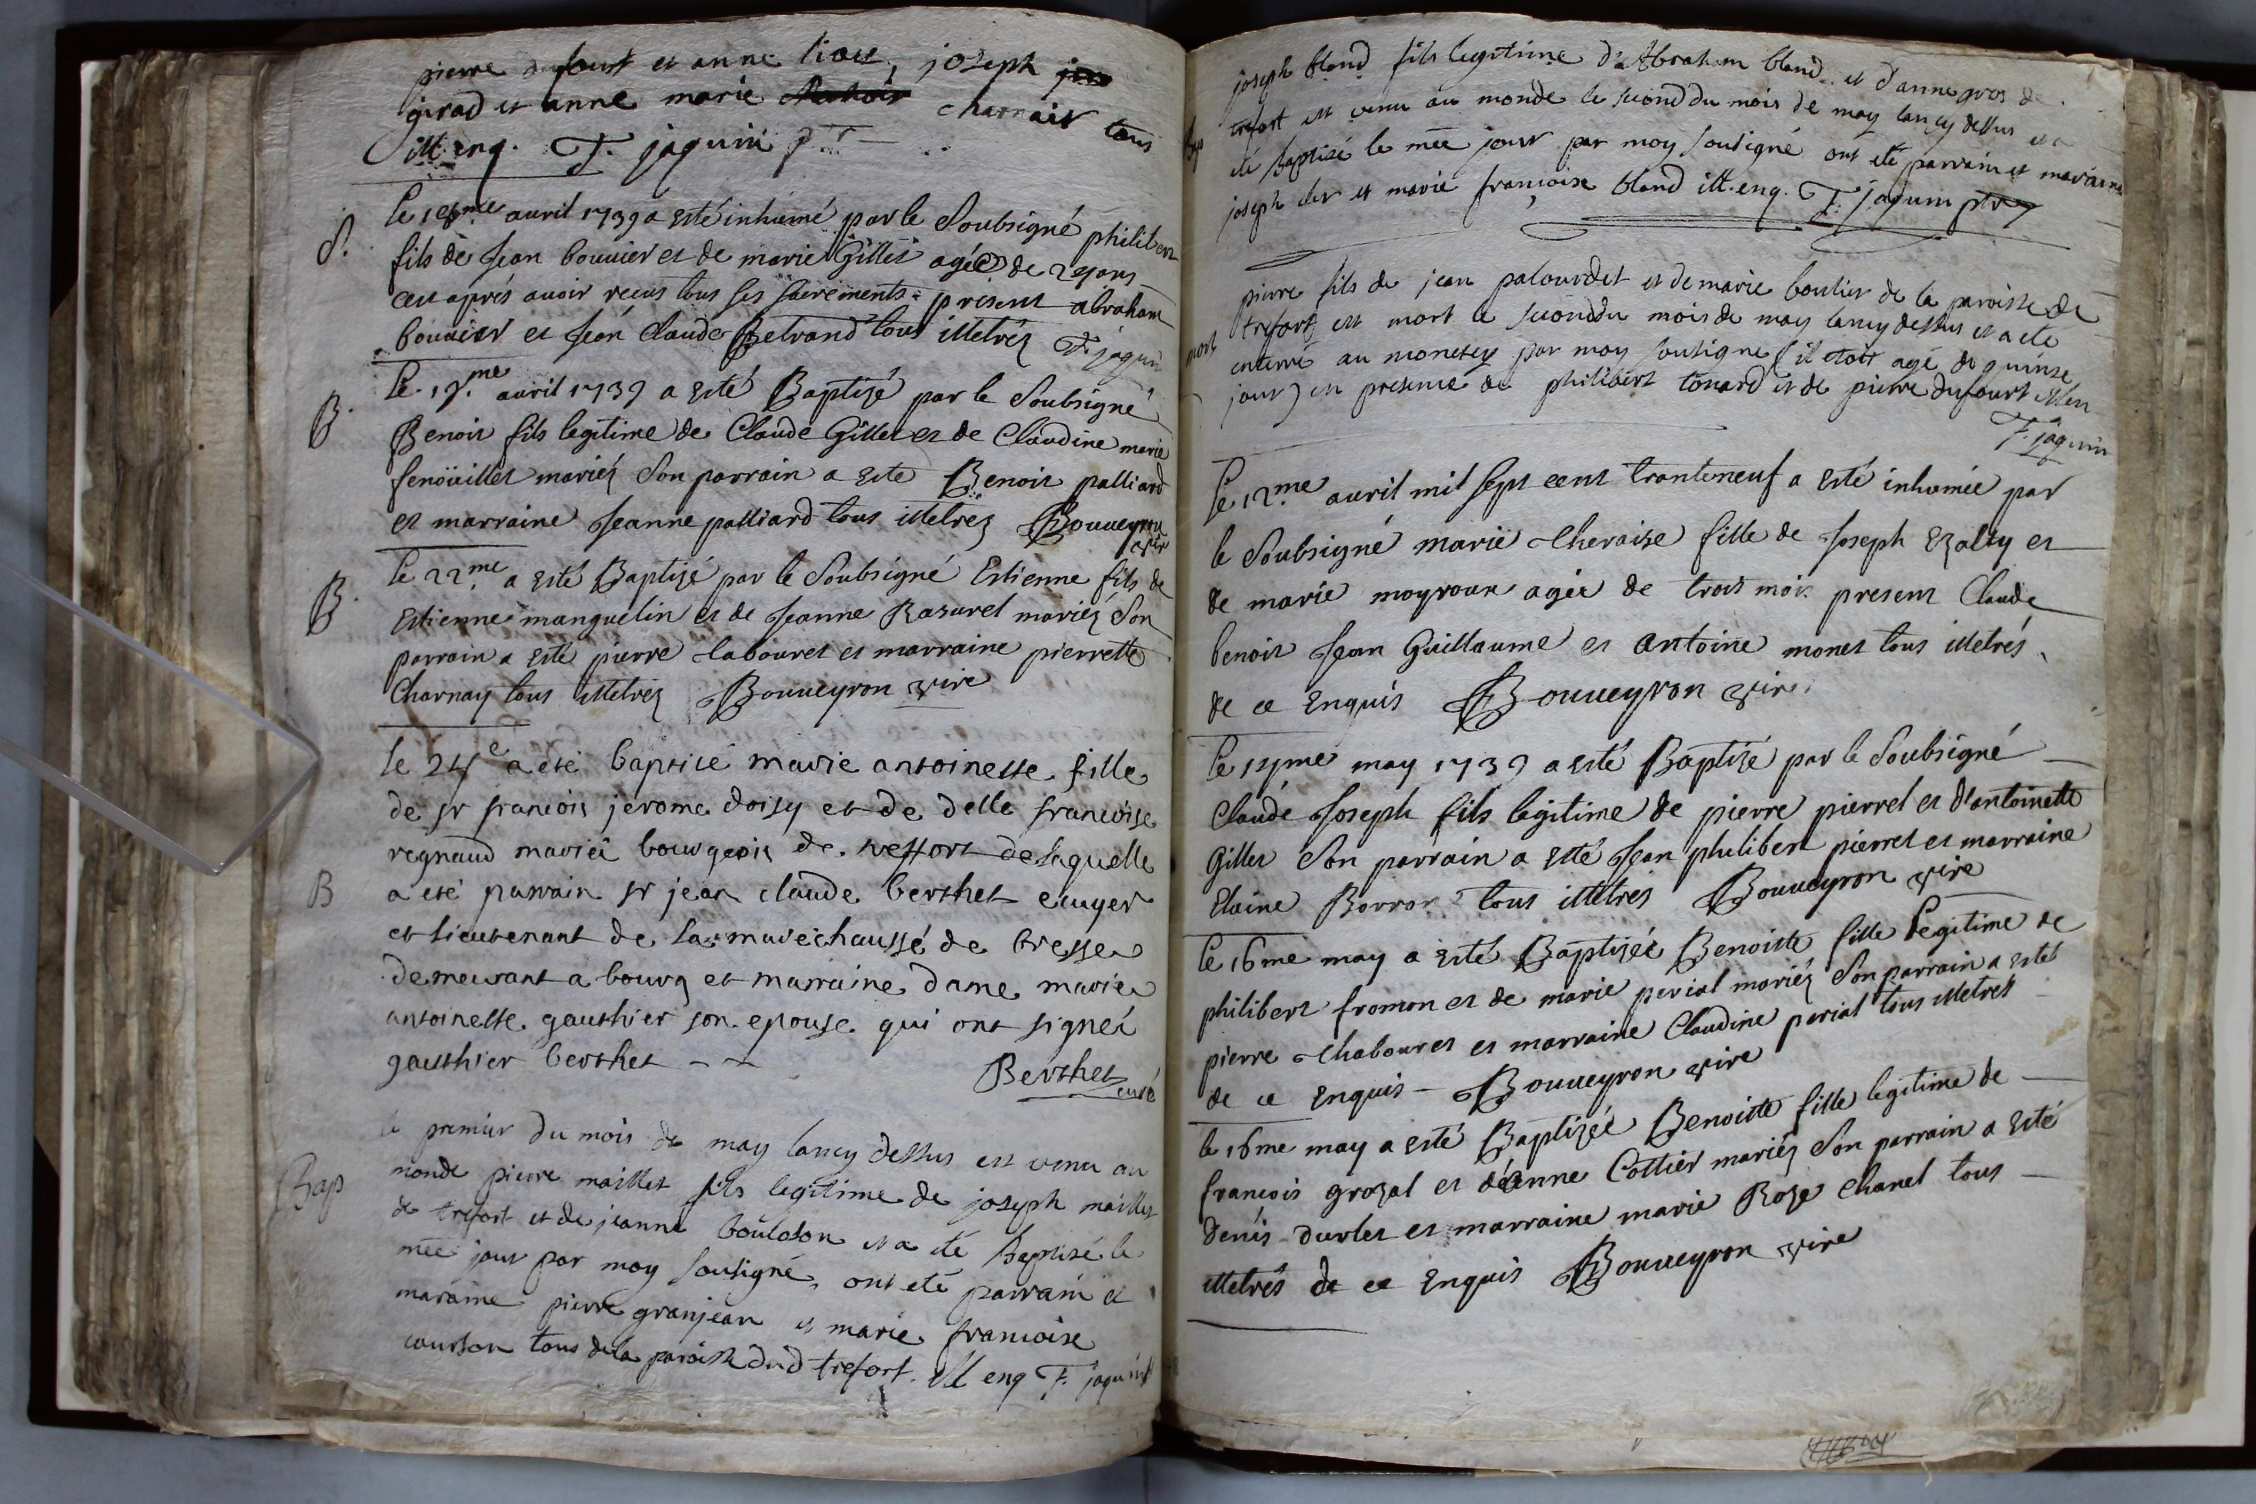 pierre dufour et anne liou, joseph
girod et anne marie charnair tous
ill. enq. F. jaquin ptr
Le 16me avril 1739 a esté inhumé par le Soubsigné philibert
S.
fils de Jean bouvier et de marie Gillet agée de
ans aprés avoir receus tous ses sacrements present abraham
bouvier et Jean Claude Belrand tous illetréz F. jaquin
Le 19.me avril 1739 a esté Baptizé par le Soubsigné
B.
Benoit fils legitime de Claude Gillet et de Claudine marie
fenoüillet mariéz Son parrain a este Benoit palliard
et marraine Jeanne palliard tous illetréz Bouveyron
vire
Le 22me a esté Baptizé par le Soubsigné Estienne fils de
B.
Estienne manguelin et de Jeanne Bazurel mariéz Son
parrain a esté pierre labouret et marraine pierrette
Charnay tous illetréz Bouveyron vire
le 24e a ete baptisé marie antoinette fille
de sr francois jerome doisy et de delle francoise
regnaud marieé bourgeois de treffort de laquelle
B
a eté parrain sr jean claude berthet ecuyer
et lieutenant de la marechaussé de bresse
demeurant a bourg et marraine dame marie
antoinette gauthier son epouse qui ont signeé
gauthier berthet
Berthet curé
le premier du mois de may lancy dessus est venu au
Bap
monde pierre maillet fils legitime de joseph maillet
de trefort et de jeanne bouloson et a eté baptisé le
mée jour par moy soutigné, ont eté parrain et
maraine pierre granjean et marie francoise
courson tous de la paroisse dud trefort. ill enq F. jaquin
joseph bland fils legitime d'Abraham bland et d'anne gros de
trefort est venu au monde le second du mois de may lancy dessus et a
Bap
eté baptisé le mée jour par moy soutigné ont eté parrain et maraine
joseph cler et marie françoise bland ill. enq. F. jaquin ptr
pierre fils de jean palourdet et de marie boulier de la paroisse de
trefort est mort le second du mois de may lancy dessus et a ete
mort
enterré au monetey par moy soutigné (il etoit agé de quinse
jour) en presence de philibert tonard et de pierre dufourt illen
F. jaquin
Le 12me avril mil sept cent trenteneuf a esté inhumée par
le Soubsigné marie theraise fille de Joseph Ezalty et
de marie moyroux agée de trois mois present Claude
benoit Jean Guillaume et antoine monet tous illetrés
de ce enquis Bouveyron vire.
Le 15me may 1739 a esté Baptizé par le Soubsigné
Claude Joseph fils legitime de pierre pierrel et d'antoinette
Gillet Son parrain a esté Jean philibert pierrel et marraine
Elaine Borron tous illetrés Bouveyron vire
Le 16me may a esté Baptizée Benoiste fille legitime de
philibert fromon et de marie perial mariéz Son parrain a esté
pierre Chabouret et marraine Claudine perial tous illetrés
de ce enquis Bouveyron vire
le 16me may a esté Baptizée Benoiste fille legitime de
francois grozal et deanne Cottier mariéz Son parrain a esté
denis durlet et marraine marie Roze Chanel tous
illetrés de ce enquis Bouveyron vire